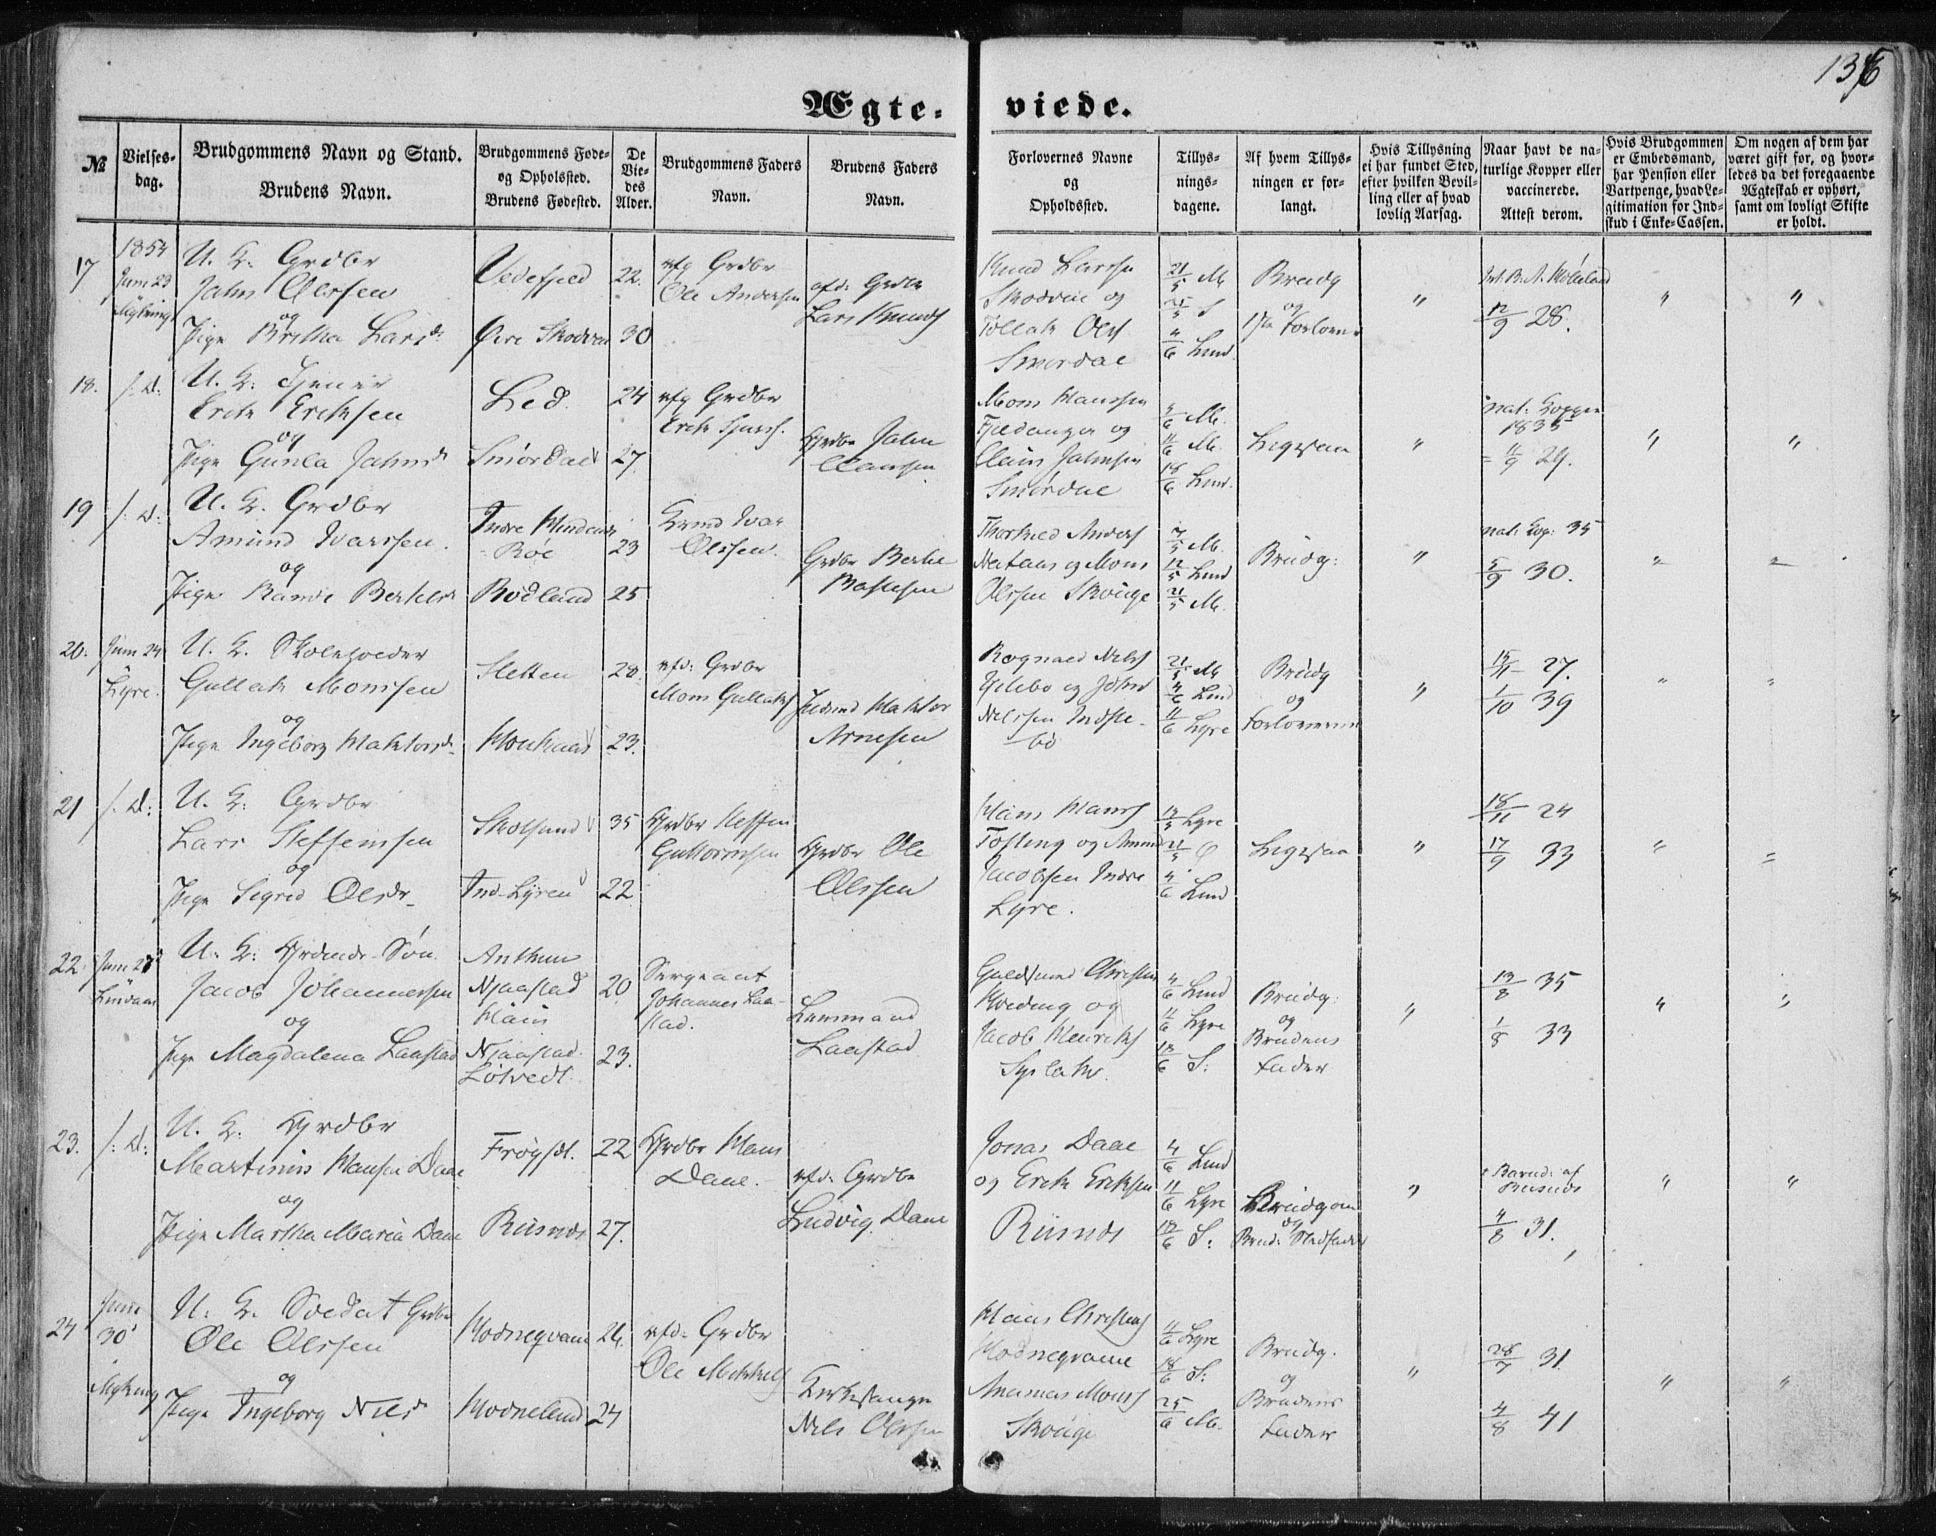 136
Ægte-viede.
№
Vielses-dag.
Brudgommens Navn og Stand.
Brudens Navn.
Brudgommens Føde-
og Opholssted.
Brudens Fødested.
De
Vie-
des
Alder.
Brudgommens Faders
Navn.
Brudens Faders
Navn.
Forlovernes Navne
og
Opholdssted.
Tillys-
nings-
dagene.
Af hvem Tillys-
ningen er for-
langt.
Hvis Tillysning
ei har fundet Sted,
efter hvilken Bevil-
ling eller af hvad
lovlig Aarsag.
Naar havt de na-
turlige Kopper eller
vaccinerede.
Attest derom.
Hvis Brudgommen
er Embedsmand,
har Pension eller
Vartpenge, hvad Le-
gitimation for Ind-
skud i Enke-Cassen.
Om nogen af dem har
været gift før, og hvor-
ledes da det foregaaende
Ægteskab er ophørt,
samt om lovligt Skifte
er holdt.
17
1854
Juni 23
U. K. Grdbr
Jahn Olssen
og
Pige Britha Larsd.
Vedefjeld
22.
30
Grdbr
Ole Andersen
Grdbr
Lars Knuds
Knud Larssen
og
Tollak Ols
Smørdal
21/5 M
25/5 S
4/6 Lind.
Brudg
og
Forlover
"
12/9 28.
"
"
18.
/: d:
U. K. Tjener
Erik Eriksen
og
Pige Gunla Jahnsd.
Led.
Smørdal
24
27.
Grdbr
Grdbr Jahn
Claussen
Mons Hanssen
Fjeldanger og
Claus Jahnsen
Smørdal
4/6 M.
11/6 M.
18/6 Lind.
Ligesaa
"
nat: Kopper
1835
11/9 29.
"
"
19
/: d:
U. K. Grdbr
Amund Ivarssen.
og
Pige Ranve Bertelsd.
Indre
Røe
Rødland
23
25
Ivar
Olssen.
Grdbr
Anders
og Mons
Olssen Skouge
7/5 M.
12/5 Lind
21/5 M.
Brudg:
"
nat: Kop: 35
5/9 30.
"
"
20.
Juni 24
Lyre.
U. K. Skoleholder
Gullak Monssen
og
Pige Ingeborg
Sletten
28.
23.
afd: Grdbr
Mons Gullaks
Arnesen
Rognald Nils
og John
Nilssen Indste-
bø
21/5 M
4/6 Lind
11/6 Lyre
Brudg
og
Forloveren
"
15/11 27.
1/10 39
"
"
21
/: d:
U. K. Grdbr
Lars Steffensen
og
Pige Sigrid Olsdr.
Skolsund
Ind-Lyren
35
22
Grdbr Steffen
Guttormsen
Grdbr Ole
Olssen
Hans Hans
Tofting og Amund
Jacobsen Indre
Lyre.
21/5
4/6 Lind
Ligesaa
"
18/11 24
17/9 33
"
"
22.
Juni 28
Lindaas
U. K. Grdmds-Søn
Jacob Johannessen
og
Pige Magdalena Laastad
Anthun
Njaastad
Njaastad.
Løtvedt
20
23.
Sergeant
Johannes Laa-
stad.
Lensmand
Laastad
Christen
Hveding og
Jacob Henriks
4/6 Lind
11/6 Lyre
18/6 S:
Brudg:
og
Brudens
Fader
"
13/8 35
1/8 33
"
"
23.
/: d:
U. K. Grdbr
Martinus Hansen Daae
og
Pige Martha Maria Daae
Frøyset.
Risnæs
22
27.
Grdbr Hans
Daae.
afd: Grdbr
Ludvig Daae
Jonas Daae
og Erik Eriksen
Risnæs
4/6 Lind
11/6 Lyre
18/6 S:
Brudgom
og
Brud: Stedfader
"
4/8 31.
"
"
24
Juni
30
Myking
U. K. Soldat Grdbr
Ole Olssen
og
Pige Ingeborg Nilsd.
Hodneqvam
Hodneland
26.
24
afd: Grdbr
Ole Mikkels
Kirkesanger
Nils Olssen
Claus Christens
Hodneqvame
Mons
Skouge
11/6 Lyre
18/6 S:
25/6 M.
Brudg.
og
Brudens
Fader
"
28/7 31
4/8 41
"
"